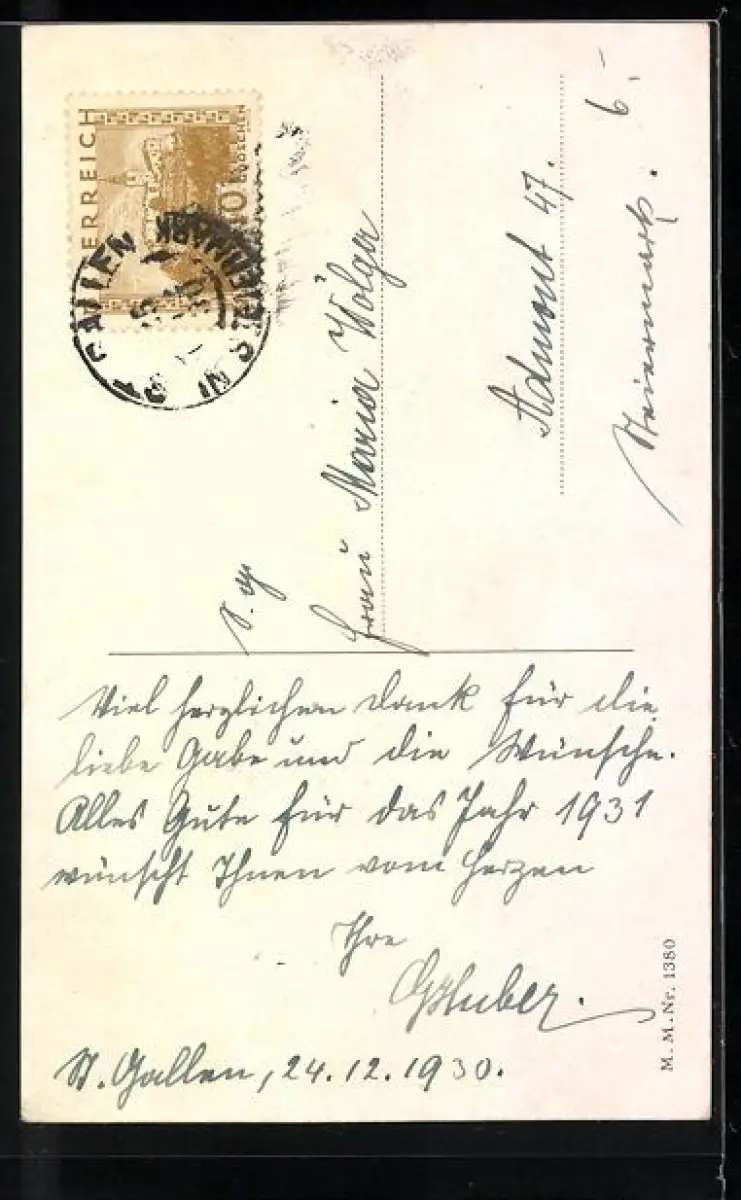 ÖSTERREICH
10 GROSCHEN
ST. GALLEN IN STEIERMARK
S. g.
Frau Maria Wölger
Admont 47.
Steiermark.
6.-
Viel herzlichen Dank für die
liebe Gabe und die Wünsche.
Alles Gute für das Jahr 1931
wünscht Ihnen vom Herzen
Ihre
GHuber.
St. Gallen, 24.12.1930.
M. M.-Nr. 1380